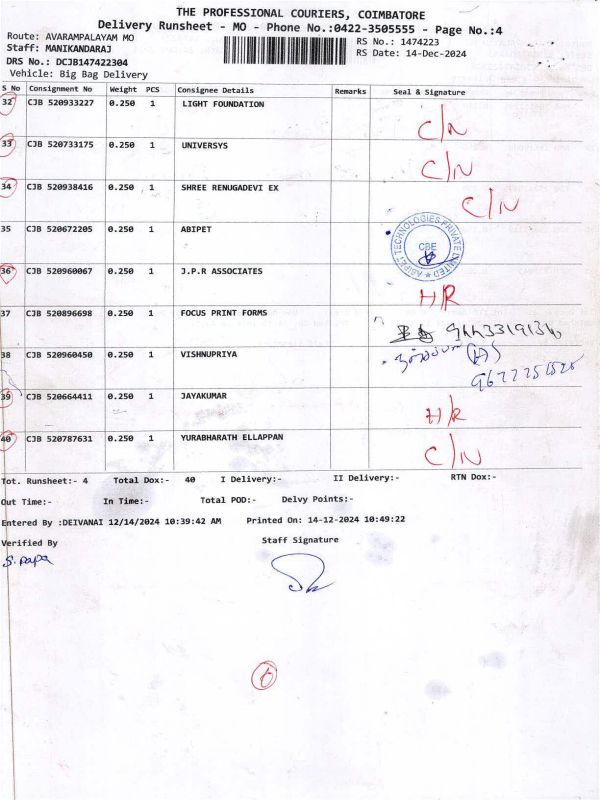 THE PROFESSIONAL COURIERS, COIMBATORE
Delivery Runsheet - MO - Phone No.:0422-3505555 - Page No.:4
Route: AVARAMPALAYAM MO
RS No.: 1474223
Staff: MANIKANDARAJ
RS Date: 14-Dec-2024
DRS No.: DCJB147422304
Vehicle: Big Bag Delivery
S No Consignment No Weight PCS Consignee Details Remarks Seal & Signature
32 CJB 520933227 0.250 1 LIGHT FOUNDATION C/N
33 CJB 520733175 0.250 1 UNIVERSYS C/N
34 CJB 520938416 0.250 1 SHREE RENUGADEVI EX C/N
35 CJB 520672205 0.250 1 ABIPET
ABIPET TECHNOLOGIES PRIVATE LIMITED
CBE
36 CJB 520960067 0.250 1 J.P.R ASSOCIATES H/R
37 CJB 520896698 0.250 1 FOCUS PRINT FORMS
38 CJB 520960450 0.250 1 VISHNUPRIYA (H)
39 CJB 520664411 0.250 1 JAYAKUMAR H/R
40 CJB 520787631 0.250 1 YURABHARATH ELLAPPAN C/N
Tot. Runsheet:- 4 Total Dox:- 40 I Delivery:- II Delivery:- RTN Dox:-
Out Time:- In Time:- Total POD:- Delvy Points:-
Entered By :DEIVANAI 12/14/2024 10:39:42 AM Printed On: 14-12-2024 10:49:22
Verified By Staff Signature
S. papa